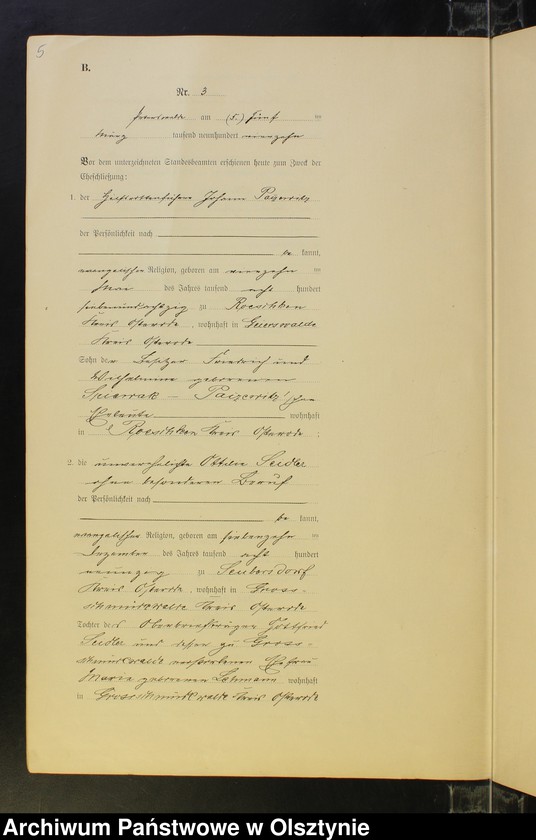 5
B.
Nr. 3
Peterswalde am (5.) Fünf ten
März tausend neunhundert vierzehn
Vor dem unterzeichneten Standesbeamten erschienen heute zum Zweck der
Eheschließung:
1. der Johann Paizewitz
der Persönlichkeit nach
be kannt,
evangelischer Religion, geboren am vierzehn ten
Mai des Jahres tausend acht hundert
siebenundachtzig zu Roeschken
Kreis Osterode, wohnhaft in Geierswalde
Kreis Osterode
Sohn der Besitzer Friedrich und
Wilhelmine geborenen
Paizewitz'schen
Eheleute wohnhaft
in Roeschken Kreis Osterode;
2. die unverehelichte Ottilie Seidler
ohne besonderen Beruf
der Persönlichkeit nach
be kannt,
evangelischer Religion, geboren am siebenzehn ten
Dezember des Jahres tausend acht hundert
neunzig zu Seubersdorf
Kreis Osterode, wohnhaft in Gross-
schmückwalde Kreis Osterode
Tochter des Gottfried
Seidler und dessen zu Gross-
schmückwalde verstorbenen Ehefrau
Marie geborenen Lehmann wohnhaft
in Grossschmückwalde Kreis Osterode
Archiwum Państwowe w Olsztynie